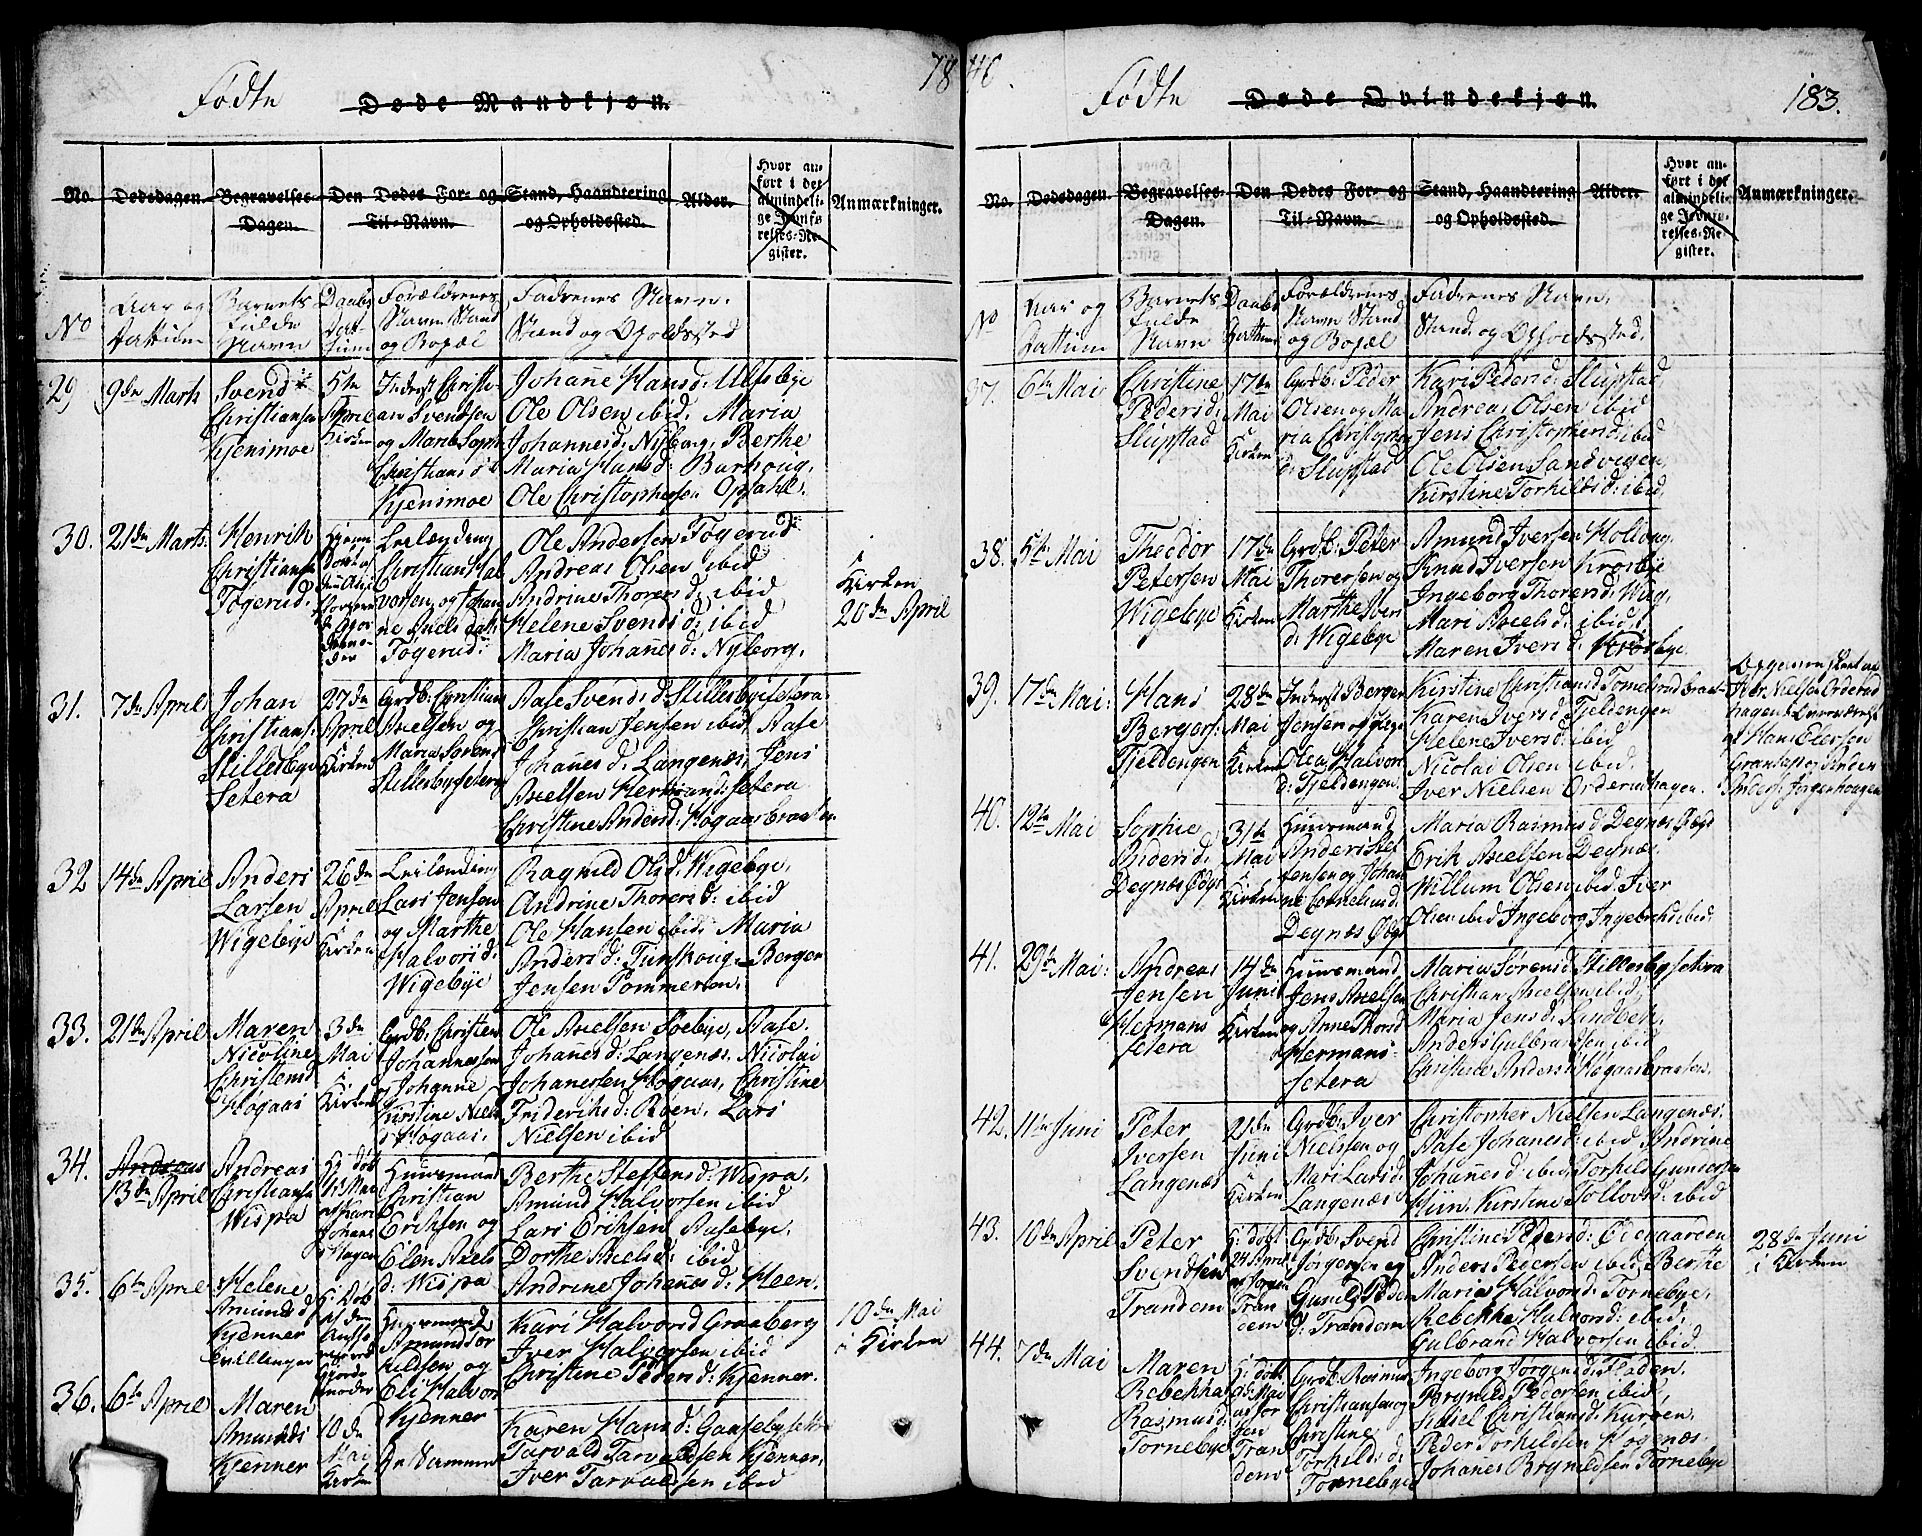 Fødte
Døde Mandkjøn.
1846.
Fødte
Døde Qvindekjøn.
183.
No.
Dødsdagen.
Begravelses-
Dagen.
Den Dødes For- og
Til-Navn.
Stand, Haandtering
og Opholdssted.
Alder.
Hvor an-
ført i det
almindeli-
ge Jevnfø-
relses-Re-
gister.
Anmærkninger.
No
Aar og
Dattum
Barnets
fulde
Navn
Daabs
Dat-
tum
Forældrenes
Navn Stand
og Bopæl
Fadrenes Navn,
Stand og Opholdssted
29
9de Marts
Svend
Christiansen
Kjensmoe
5te
April
i
Kirken
Inderst Christi-
an Svendsen
og Marie Soph.
Christians d:
Kjensmoe
Johanne Hansd: Ulfsbye
Ole Olsen ibid, Maria
Johannesd: Nyborg, Berthe
Maria Hansd: Barhoug,
Ole Christophersen Opsahl.
30.
21de Marts.
Henrik
Christiansen
Togerud.
Leilænding
Christian Hal
vorsen og Johan
ne Axels datt:
Togerud.
Ole Andersen Togerud
Andreas Olsen ibid
Andrine Thoresd: ibid
Helene Svensd: ibid
Maria Johannesd: Nyborg.
i
Kirken
20de April
31.
7de April
Johan
Christians:
Stillesbye
Setera
27de
April
i
Kirken
Grdb: Christian
Axelsen og
Maria Sørensd:
Stillesbysetera
Aase Svends d Stillesbysetera
Christian Jensen ibid, Aase
Johannesd: Langenæs, Jens
Axelsen Hermansd: setera
Christine Andersd: Høgaasbraaten
32
14de April
Anders
Larsen
Wigebye
26de
April
i
Kirken
Leilænding
Lars Jensen
og Marthe
Halvorsd:
Wigebye
Ragnild Olsd: Wigebye,
Andrine Thoresd: ibid
Ole Hansen ibid, Maria
Andersd: Furskoug, Berger
Jensen Pommersen.
33.
21de April
Maren
Nicoline
Christensd
Høgaas
3de
Mai
i
Kirken
Grdb: Christen
Johannessen
Johanne
Kirstine Niels
d: Høgaas.
Ole Axelsen Soebye, Aase
Johannesd: Langenæs, Nicolai
Johanessen Høgaas, Christine
Friderichsd: Røen, Lars
Nielsen ibid
34.
Andreas
13de April
Andreas
Christiansen
Wispa
Huusmand
Christian
Erichsen og
Elen Axels
d: Wispa
Berthe Steffensd: Wispa,
Amund Halvorsen ibid
Lars Erichsen Aasebye,
Dorthe Axelsd: ibid
Andrine Johanesd: Heen.
35.
6te April
Helene
Amunds d
Kjenner
Tvillinger
Huusmand
Amund Tor
kildsen og
Eli Halvor
Kjenner
Kari Halvorsd Graaberg
Iver Halvorsen ibid
Christine Pedersd: Kjenner.
10de Mai
i Kirken
36.
6te April
Maren
Amundsd
Kjenner
10de
Mai
i
Kirken
De Samme
Karen Hansd: Gaaseby
Tarvald Tarvaldsen Kjenner,
Iver Tarvaldsen ibid
No.
Dødsdagen.
Begravelses-
Dagen.
Den Dødes For- og
Til-Navn.
Stand, Haandtering
og Opholdssted.
Alder.
Hvor an-
ført i det
almindeli-
ge Jevnfø-
relses-Re-
gister.
Anmærkninger.
No
Aar og
Dattum
Barnets
fulde
Navn
Daabs
Dattum
Forældrenes
Navn Stand
og Bopæl
Fadrenes Navn,
Stand og Opholdssted.
37.
6te Mai
Christine
Pedersd:
Slupstad
17de
Mai
i
Kirken
Grdb: Peder
Olsen og Ma
ria Christopher
d: Slupstad
Kari Pedersd: Slupstad
Andreas Olsen ibid
Jens Christophersen ibid
Ole Olsen Sandvigen,
Kirstine Torkildsd: ibid.
38.
5te Mai
Theodor
Petersen
Wigebye
17de
Mai
i
Kirken
Grdb: Peter
Thorersen og
Marthe Ivers
d: Wigebye
Amund Iversen Holtoug,
Knud Iversen Krosbye
Ingeborg Thoresd: Wiig,
Mari Axelsd: ibid,
Maren Iversd: Krosbye.
39.
17de Mai:
Hans
Bergers:
Tjeldengen
28de
Mai
i
Kirken
Inderst Berger
Jensen og
Olea Halvors
d: Tjeldengen
Kirstine Christiansd Tornebraaten
Karen Iversd: Tjeldengen
Helene Iversd: ibid
Nicolai Olsen ibid.
Iver Nielsen Orderudhagen.
Iver Nielsen Orderud
hagen
Hans Elersen
Anders: Jørgenhougen
40.
12te Mai
Sophie
Andersd:
Degnæs Ødgd
31te
Mai
i
Kirken
Huusmand
Anders
Jensen og Johan
ne Corneliusd.
Degnæs Ødgd
Maria Rasmusd: Degnæs Ødgd
Erik Axelsen Degnæs,
Willum Olsen ibid, Iver
Olsen ibid, Ingeborg Ingebrechtsd ibid.
41.
29de Mai:
Andreas
Jensen
Hermans
setera
14de
Juni
i
Kirken
Huusmand
Jens Axelsen
og Anne Thorsd
Hermans-
setera
Maria Sørensd Stillesbysetera
Christian Axelsen ibid,
Maria Jensd: Lundbek,
Anders Gulbrandsen ibid
Christine Andersd: Høgaasbraaten.
42.
11te Juni
Peter
Iversen
Langenæs
21de
Juni
i
Kirken
Grdb: Iver
Nielsen og
Mari Larsd:
Langenæs
Christopher Nielsen Langenæs:
Aase Johanesd: ibid, Andrine
Johanesd: ibid Torkild Gundersen
Hiin, Kirstine Tollovsd: ibid
43.
10de April
Peter
Svendsen
Trandem
H: døbt
24 April
af Jørgen
Tran
dem
Grdb: Svend
Jørgensen og
Gunild Peder
d: Trandem
Christine Pedersd: Ødegaarden
Anders Pedersen ibid, Berthe
Maria Halvorsd: Tornebye,
Rebekka Halvorsd: ibid,
Gulbrand Halvorsen ibid.
28de Juni
i Kirken
44.
7de Mai
Maren
Rebekka
Rasmusd:
Tornebye
Grdb: Rasmus
Christiansen og
Christine
Torkildsd:
Tornebye
Ingeborg Jørgensd: Fladen,
Brynild Pedersen ibid,
Sidsel Christiansd: Kurven,
Peder Torkildsen Hogenæs,
Johannes Brynildsen Tornebye